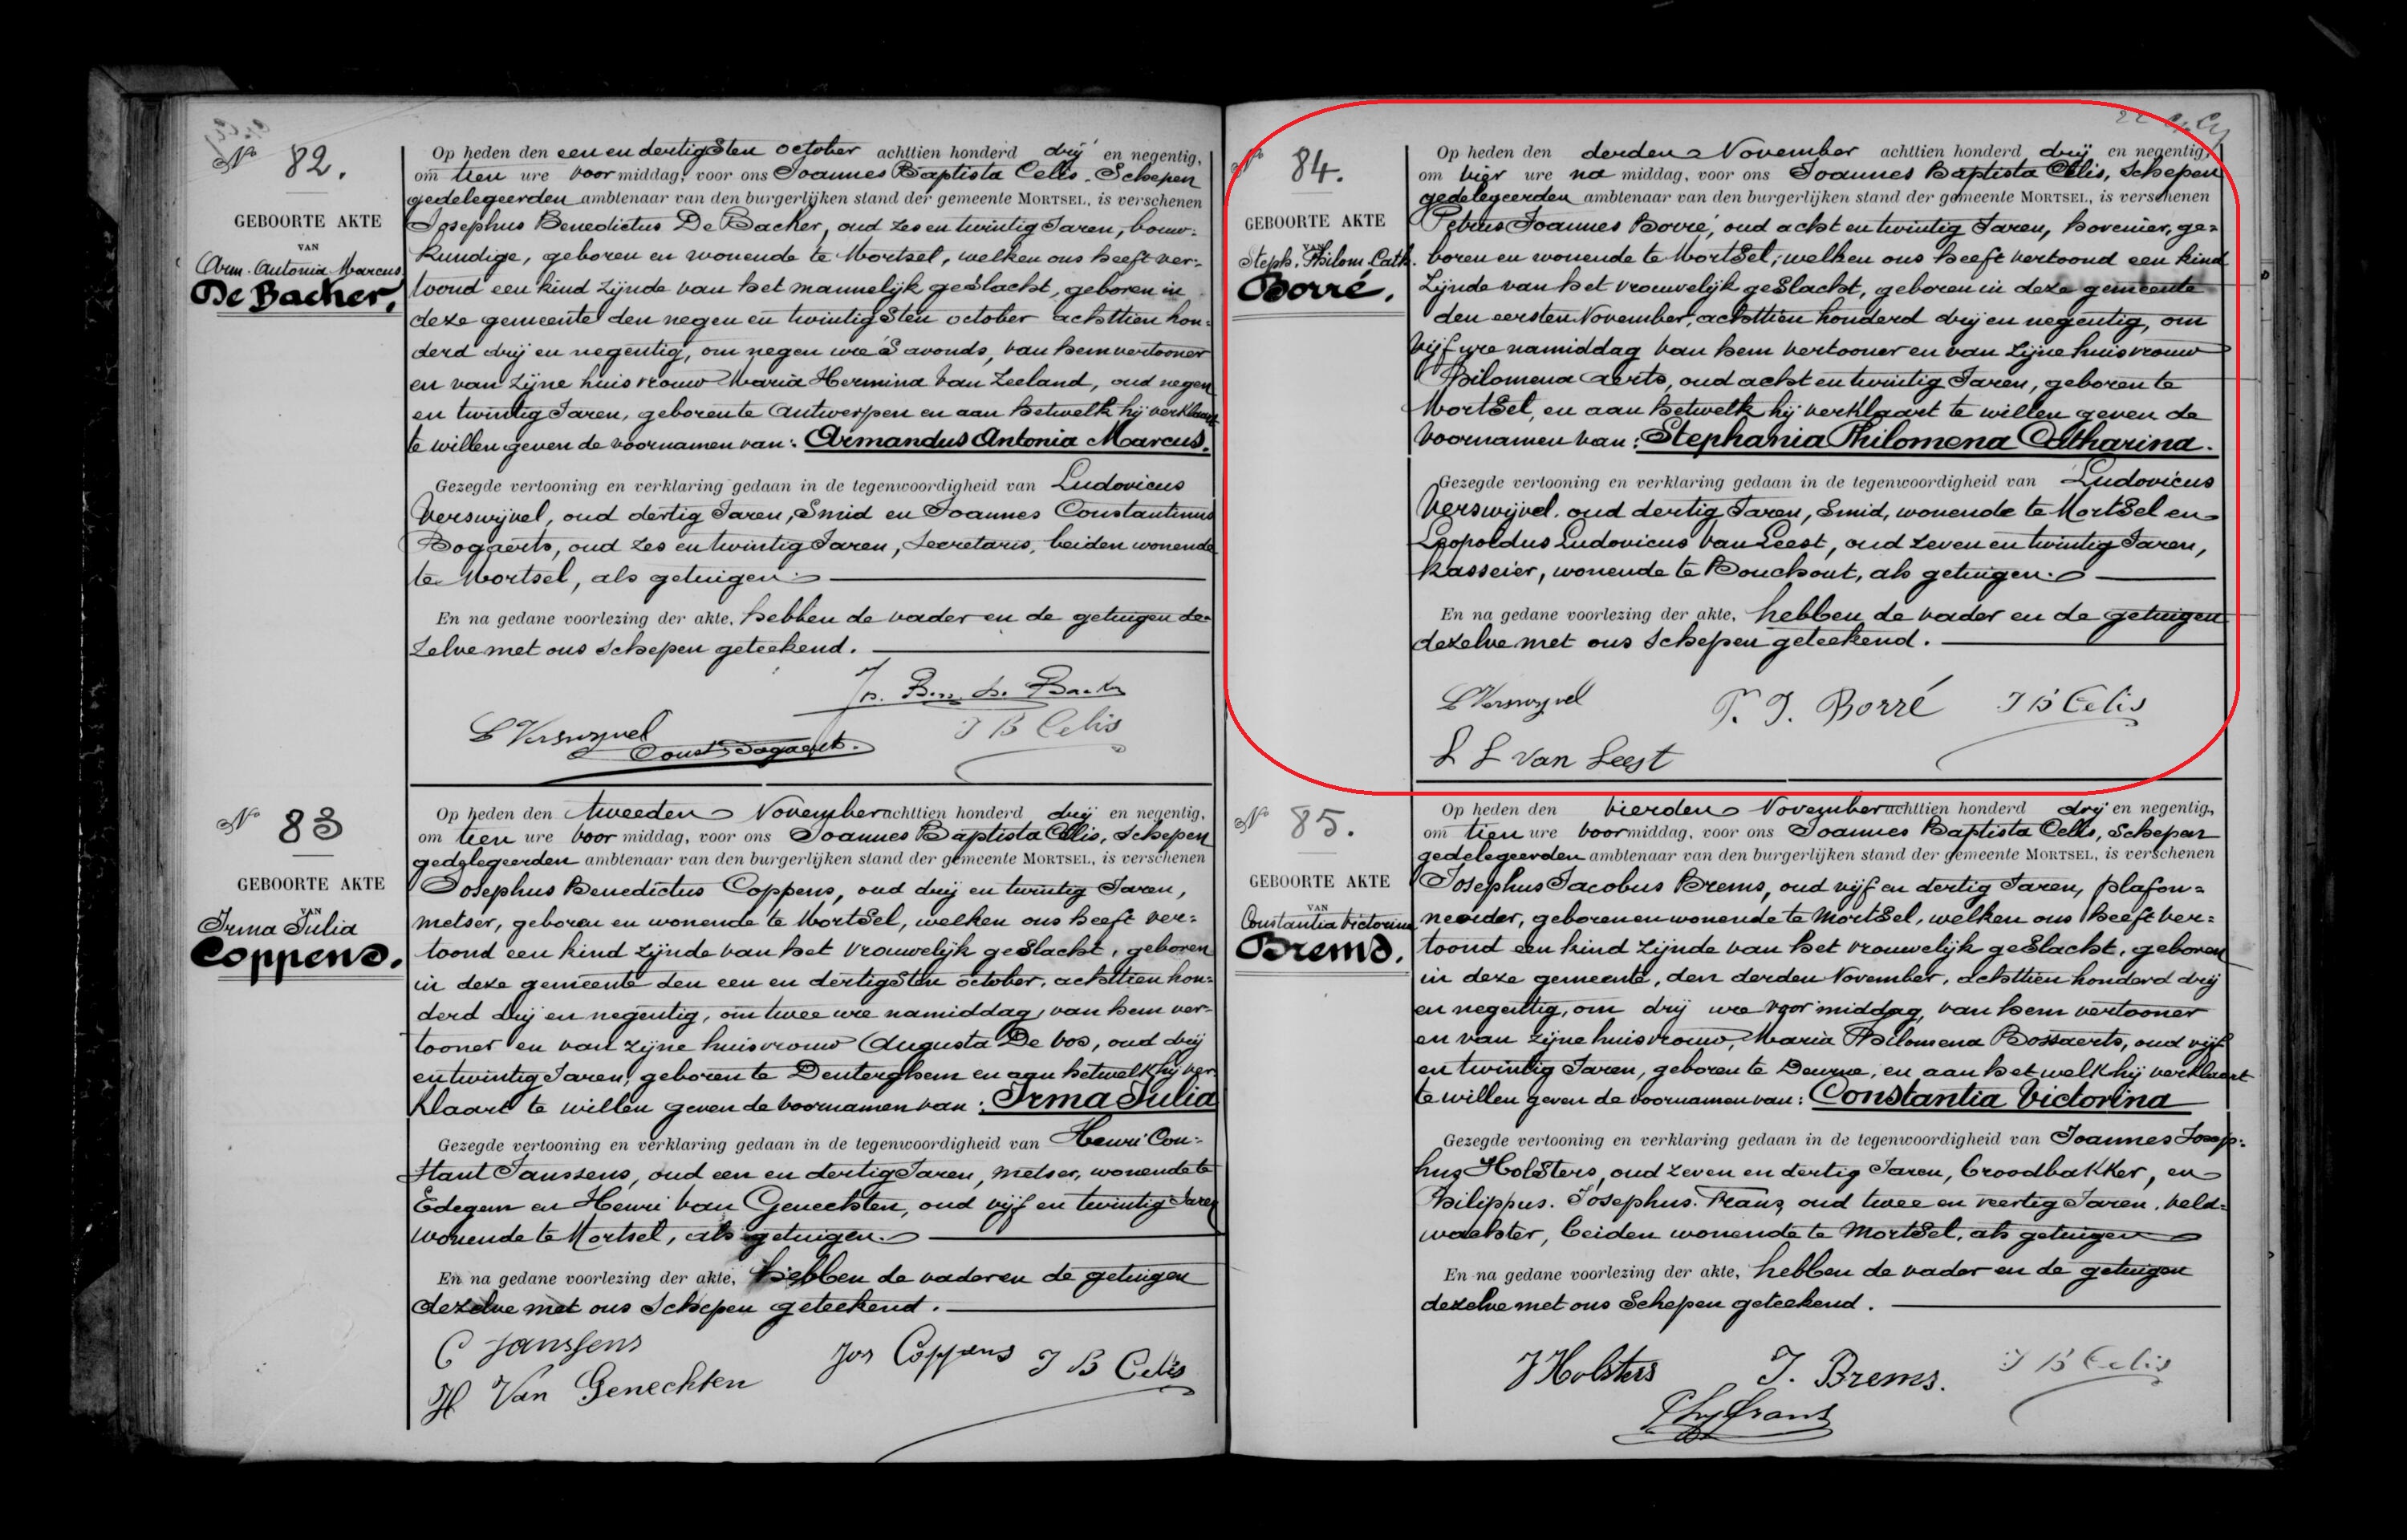 Nº 82.
GEBOORTE AKTE
VAN
Arm. Antonia Marcus
De Backer.
Op heden den een en dertigsten october achttien honderd drij en negentig,
om tien ure voor middag, voor ons Joannes Baptista Celis, Schepen
gedelegeerden ambtenaar van den burgerlijken stand der gemeente MORTSEL, is verschenen
Josephus Benedictus De Backer, oud zes en twintig Jaren, bouw-
kundige, geboren en wonende te Mortsel, welken ons heeft ver-
toond een kind zijnde van het mannelijk geslacht, geboren in
deze gemeente den negen en twintigsten october achttien hon-
derd drij en negentig, om negen ure 's avonds, van hem vertooner
en van zijne huisvrouw Maria Hermina Van Zeeland, oud negen
en twintig Jaren, geboren te Antwerpen en aan hetwelk hij verklaart
te willen geven de voornamen van: Armandus Antonia Marcus.
Gezegde vertooning en verklaring gedaan in de tegenwoordigheid van Ludovicus
Verswijvel, oud dertig Jaren, Smid en Joannes Constantinus
Bogaerts, oud zes en twintig Jaren, Secretaris, beiden wonende
te Mortsel, als getuigen.
En na gedane voorlezing der akte, hebben de vader en de getuigen de-
zelve met ons Schepen geteekend.
Jos. Ben. De Backer
L Verswyvel
Const Bogaerts.
J B Celis
Nº 83
GEBOORTE AKTE
VAN
Irma Julia
Coppens.
Op heden den tweeden November achttien honderd drij en negentig,
om tien ure voor middag, voor ons Joannes Baptista Celis, Schepen
gedelegeerden ambtenaar van den burgerlijken stand der gemeente MORTSEL, is verschenen
Josephus Benedictus Coppens, oud drij en twintig Jaren,
metser, geboren en wonende te Mortsel, welken ons heeft ver-
toond een kind zijnde van het vrouwelijk geslacht, geboren
in deze gemeente den een en dertigsten october, achttien hon-
derd drij en negentig, om twee ure namiddag, van hem ver-
tooner en van zijne huisvrouw Augusta De Vos, oud drij
en twintig Jaren, geboren te Denterghem en aan hetwelk hij ver-
klaart te willen geven de voornamen van: Irma Julia
Gezegde vertooning en verklaring gedaan in de tegenwoordigheid van Henri Con-
stant Janssens, oud een en dertig Jaren, metser, wonende te
Edegem en Henri Van Genechten, oud vijf en twintig Jaren
wonende te Mortsel, als getuigen.
En na gedane voorlezing der akte, hebben de vader en de getuigen
dezelve met ons Schepen geteekend.
C Janssens
Jos Coppens
J B Celis
H Van Genechten
Nº 84.
GEBOORTE AKTE
VAN
Steph. Philom. Cath.
Borré.
Op heden den derden November achttien honderd drij en negentig,
om vier ure na middag, voor ons Joannes Baptista Celis, Schepen
gedelegeerden ambtenaar van den burgerlijken stand der gemeente MORTSEL, is verschenen
Petrus Joannes Borré, oud acht en twintig Jaren, hovenier, ge-
boren en wonende te Mortsel, welken ons heeft vertoond een kind
zijnde van het vrouwelijk geslacht, geboren in deze gemeente
den eersten November, achttien honderd drij en negentig, om
vijf ure namiddag van hem vertooner en van zijne huisvrouw
Philomena Aerts, oud acht en twintig Jaren, geboren te
Mortsel, en aan hetwelk hij verklaart te willen geven de
voornamen van: Stephania Philomena Catharina.
Gezegde vertooning en verklaring gedaan in de tegenwoordigheid van Ludovicus
Verswijvel, oud dertig Jaren, Smid, wonende te Mortsel en
Leopoldus Ludovicus Van Leest, oud zeven en twintig Jaren,
kasseier, wonende te Bouchout, als getuigen.
En na gedane voorlezing der akte, hebben de vader en de getuigen
dezelve met ons Schepen geteekend.
L Verswyvel
P. J. Borré
J B Celis
L L Van Leest
Nº 85.
GEBOORTE AKTE
VAN
Constantia Victorina
Brems.
Op heden den vierden November achttien honderd drij en negentig,
om tien ure voormiddag, voor ons Joannes Baptista Celis, Schepen
gedelegeerden ambtenaar van den burgerlijken stand der gemeente MORTSEL, is verschenen
Josephus Jacobus Brems, oud vijf en dertig Jaren, plafon-
neerder, geboren en wonende te Mortsel, welken ons heeft ver-
toond een kind zijnde van het vrouwelijk geslacht, geboren
in deze gemeente, den derden November, achttien honderd drij
en negentig, om drij ure voormiddag, van hem vertooner
en van zijne huisvrouw, Maria Philomena Bossaerts, oud vijf
en twintig Jaren, geboren te Deurne, en aan het welk hij verklaart
te willen geven de voornamen van: Constantia Victorina
Gezegde vertooning en verklaring gedaan in de tegenwoordigheid van Joannes Josep-
hus Holsters, oud zeven en dertig Jaren, broodbakker, en
Philippus. Josephus. Frans, oud twee en veertig Jaren, veld-
wachter, beiden wonende te Mortsel, als getuigen
En na gedane voorlezing der akte, hebben de vader en de getuigen
dezelve met ons Schepen geteekend.
J Holsters
J. Brems.
J B Celis
Frans